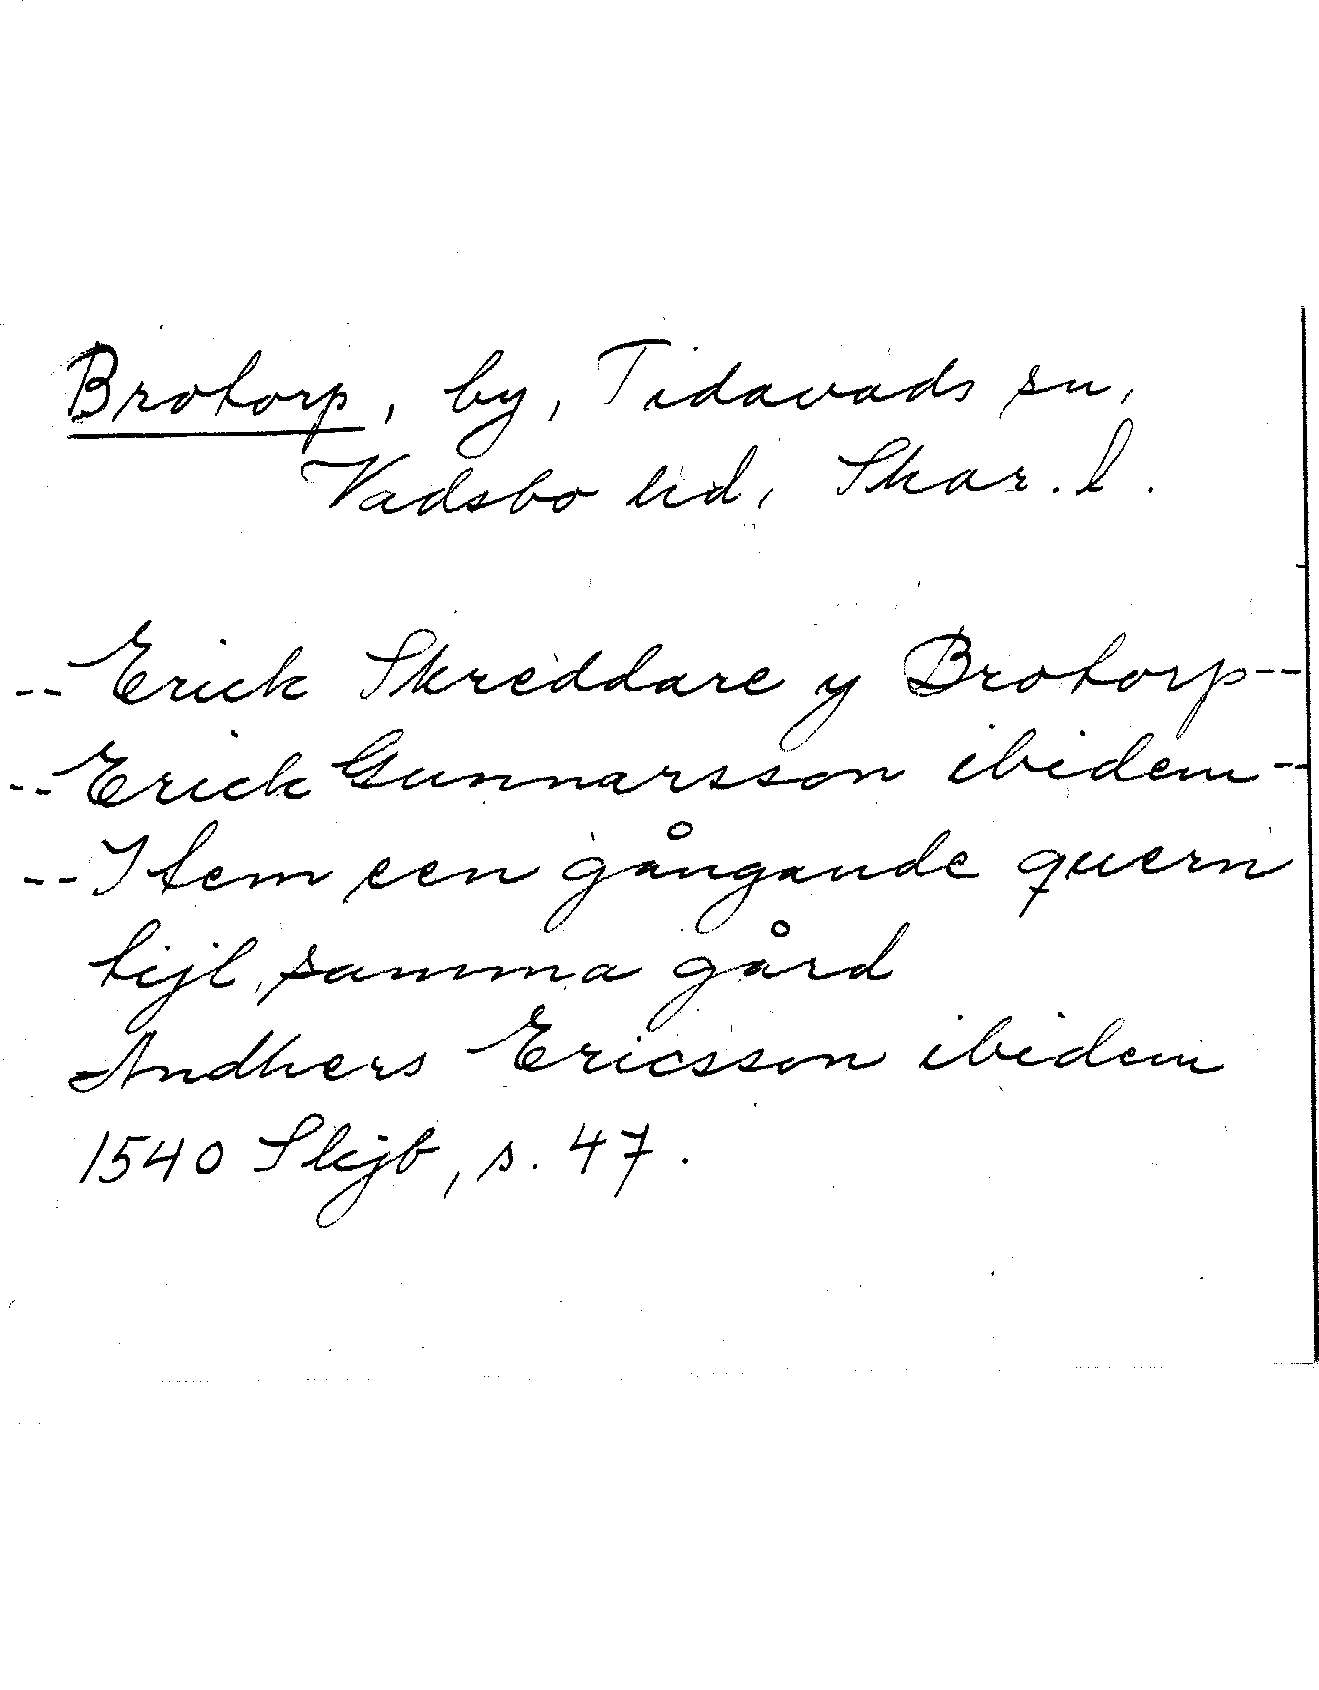 Brotorp, by, Tidavads sn,
Vadsbo hd, Skar. l.
-- Erick Skreddare y Brotorp --
-- Erick Gunnarsson ibidem --
-- Item een gångande quern
tijl samma gård
Andhers Ericsson ibidem
1540 Skjb, s. 47.